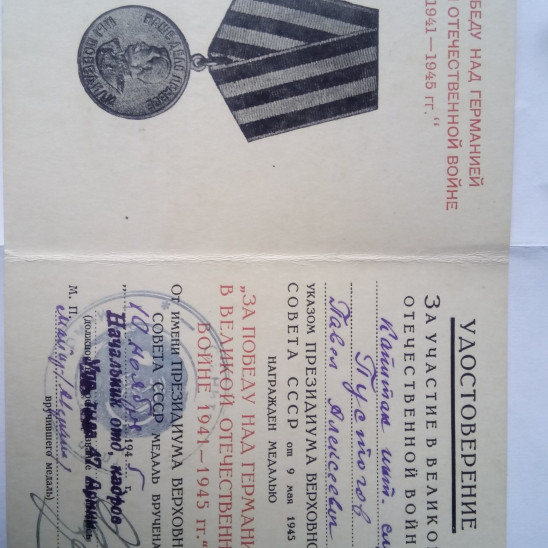 БЕДУ НАД ГЕРМАНИЕЙ
ОТЕЧЕСТВЕННОЙ ВОЙНЕ
1941—1945 гг."
НАШЕ ДЕЛО ПРАВОЕ
МЫ ПОБЕДИЛИ
УДОСТОВЕРЕНИЕ
ЗА УЧАСТИЕ В ВЕЛИКО
ОТЕЧЕСТВЕННОЙ ВОЙН
Капитан инт. сл
Пустогов
Павел Алексеевич
УКАЗОМ ПРЕЗИДИУМА ВЕРХОВНО
СОВЕТА СССР от 9 мая 1945
НАГРАЖДЕН МЕДАЛЬЮ
„ЗА ПОБЕДУ НАД ГЕРМАНИ
В ВЕЛИКОЙ ОТЕЧЕСТВЕНН
ВОЙНЕ 1941—1945 гг."
От ИМЕНИ ПРЕЗИДИУМА ВЕРХОВН
СОВЕТА СССР МЕДАЛЬ ВРУЧЕНА
10 ноября 1945
Начальник отд. кадров
47 Армии
М. П.
вручившего медаль)